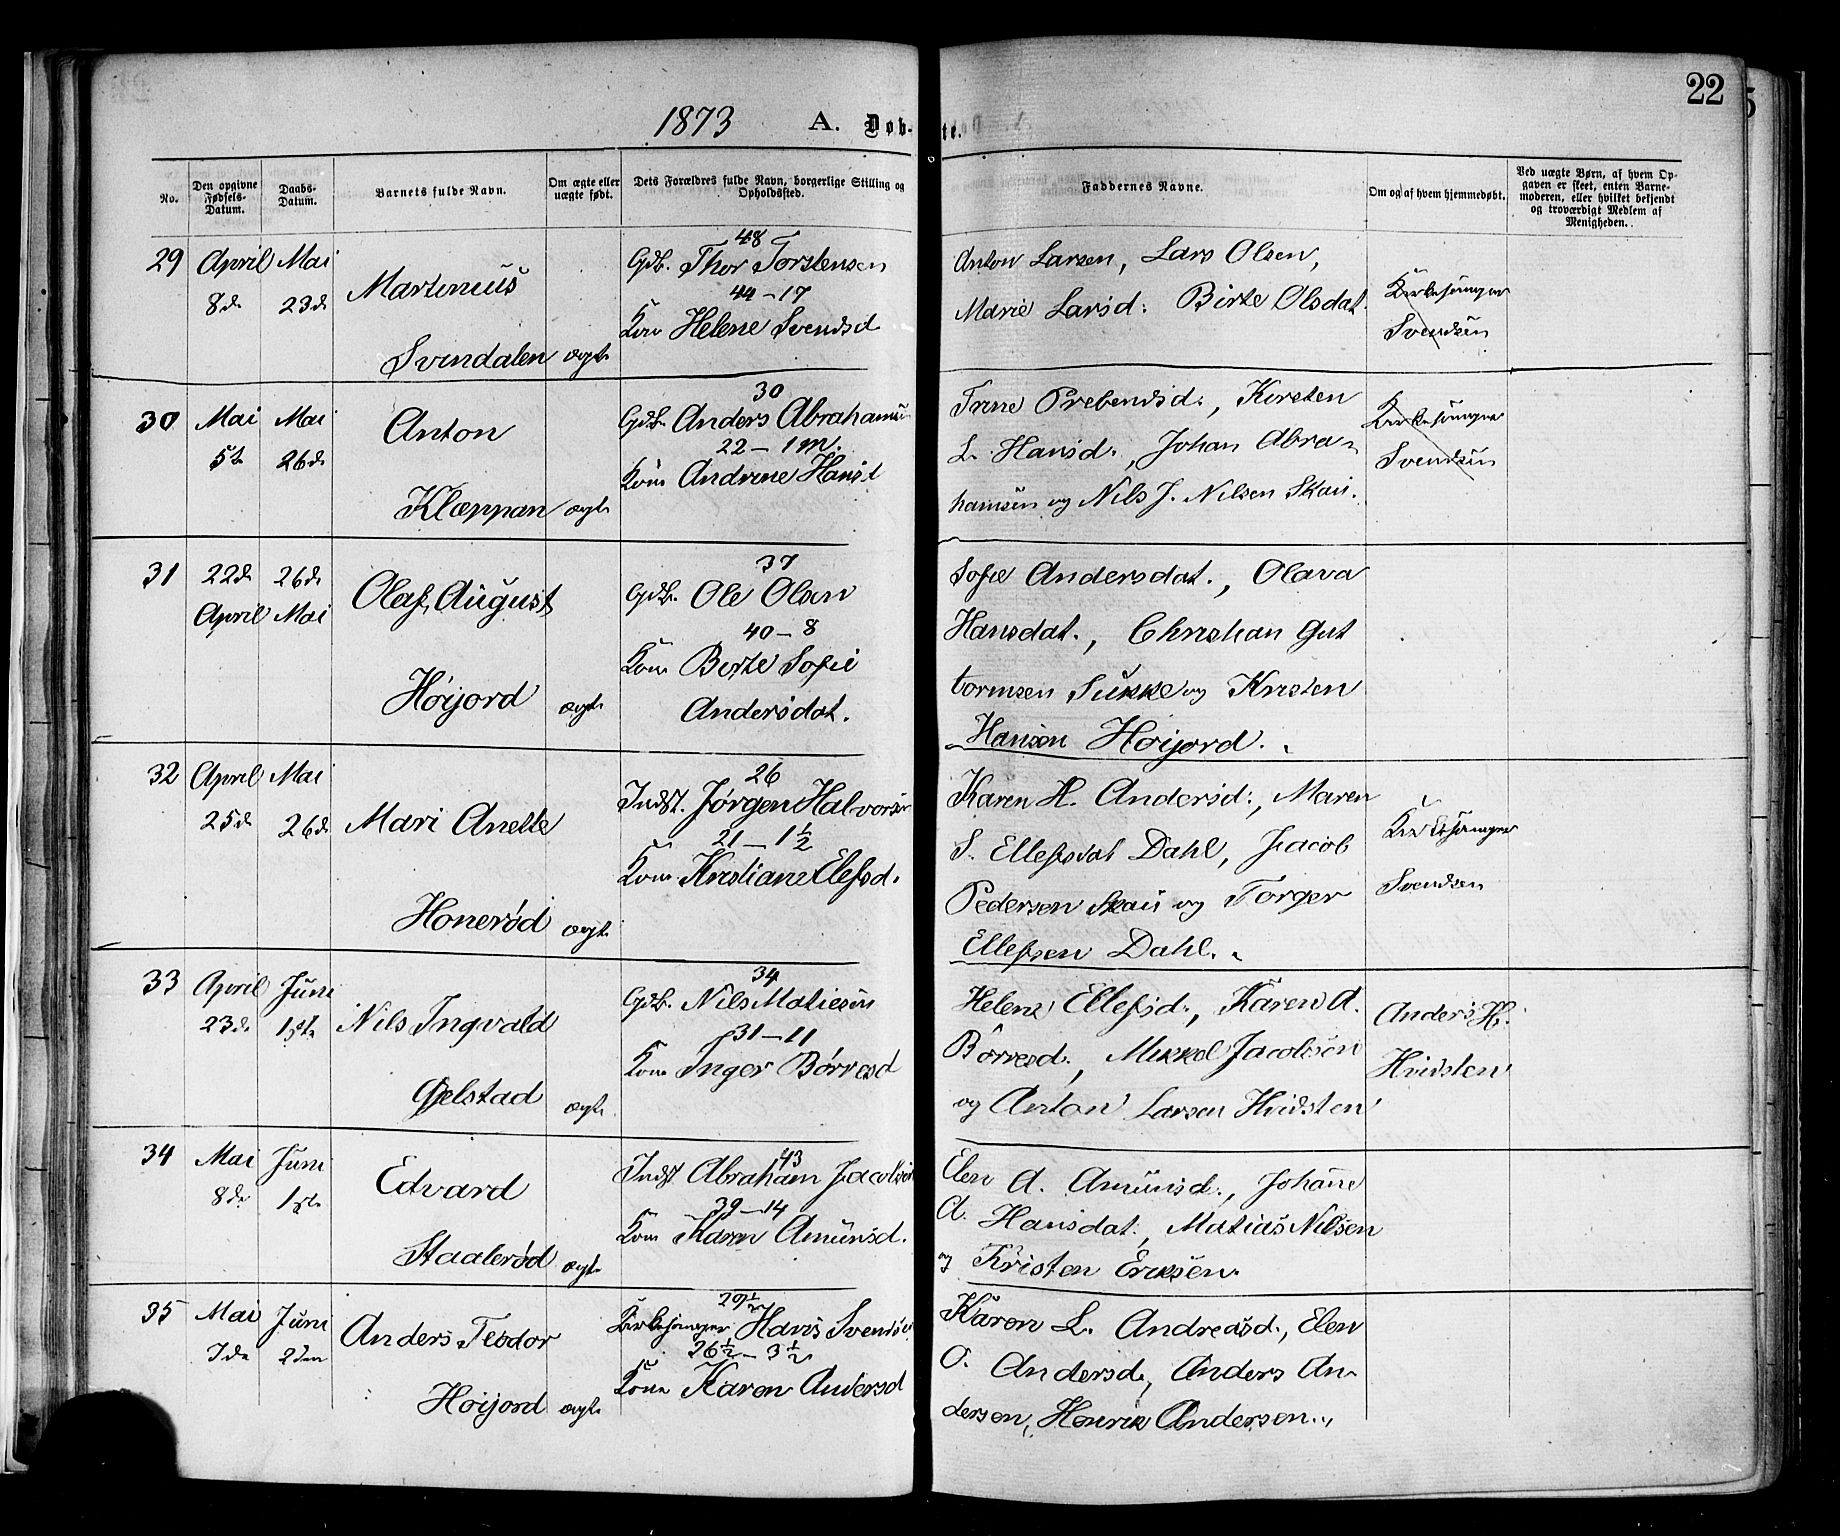 22
1873 A. Døb-te.
No.
Den opgivne Fødsels-Datum.
Daabs-Datum.
Barnets fulde Navn.
Om ægte eller uægte født.
Dets Forældres fulde Navn, borgerlige Stilling og Opholdssted.
Faddernes Navne.
Om og af hvem hjemmedøbt.
Ved uægte Børn, af hvem Opgaven er skeet, enten Barnemoderen, eller hvilket bekjendt og troværdigt Medlem af Menigheden.
29 April 8de Mai 23de
Martinius
Svendalen ægte
48
Gdb. Thor Torstensen
44 – 17
Kone Helene Svendsd
Anton Larsen, Lars Olsen,
Marie Larsd: Birte Olsdat.
Kirkesanger
Svendsen
30 Mai 5te Mai 26de
Anton
Klæppan ægte
30
Gdb. Anders Abrahamsen
22 – 1 m.
Kone Andrine Hansd
Trine Prebendsd., Kirsten
L. Hansd., Johan Abra-
hamsen og Nils J. Nilsen Skau.
Kirkesanger
Svendsen
31 22de April 26de Mai
Olaf, August
Høijord ægte
37
Gdb. Ole Olsen
40 – 8
Kone Berte Sofie
Andersdat.
Sofie Andersdat., Olava
Hansdat., Christian Gut
tormsen Sukke og Kristen
Hansen Høijord.
32 April 25de Mai 26de
Mari Anette
Honerød ægte
26
Indst. Jørgen Halvorsen
21 – 1½
Kone Kristiane Elefsd.
Karen H. Andersd:, Maren
S. Ellefsdat Dahl, Jacob
Pedersen Skau og Torger
Ellefsen Dahl.
Kirkesanger
Svendsen
33 April 23de Juni 1ste
Nils Ingvald
Gjelstad ægte
34
Gdb. Nils Matiesen
31 – 11
Kone Inger Børresd
Helene Ellefsd., Karen A.
Børresd., Mikkel Jacobsen
og Anton Larsen Hvidsten
Anders H.
Hvidsten
34 Mai 8de Juni 1ste
Edvard
Staalerød ægte
43
Indst. Abraham Jacobsen
39 – 14
Kone Karen Amunsd.
Elen A. Amunsd., Johanne
A. Hansdat., Matias Nilsen
og Kristen Eriksen.
35 Mai 7de Juni 2den
Anders Teodor
Høijord ægte
29½
Kirkesanger Hans Svendsen
26½ – 3½
Kone Karen Andersd
Karen L. Andreasd., Elen
O. Andersd., Anders An-
dersen, Henrik Andersen.